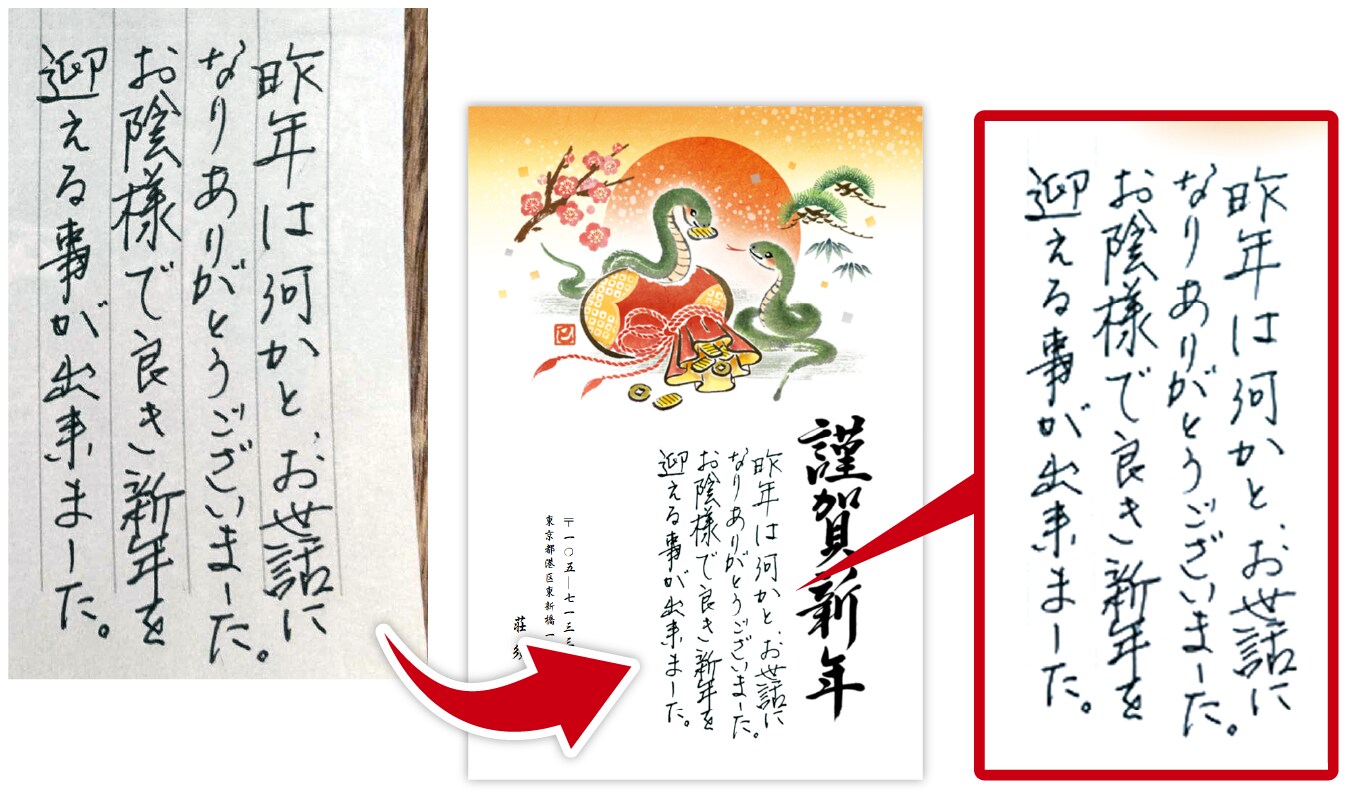 昨年は何かと、お世話に
なりありがとうございました。
お陰様で良き新年を
迎える事が出来ました。
謹賀新年
昨年は何かと、お世話に
なりありがとうございました。
お陰様で良き新年を
迎える事が出来ました。
〒一〇五―七一三三
東京都港区東新橋一
荘
巳
昨年は何かと、お世話に
なりありがとうございました。
お陰様で良き新年を
迎える事が出来ました。